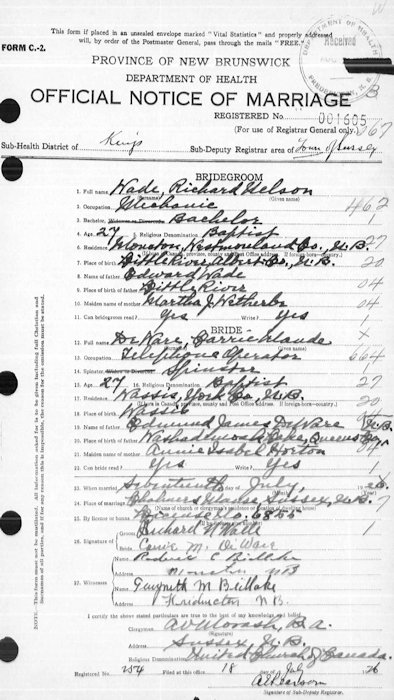 This form if placed in an unsealed envelope marked "Vital Statistics" and properly addressed
will, by order of the Postmaster General, pass through the mails "FREE."
FORM C.-2.
DEPARTMENT OF HEALTH
Received
FREDERICTON, N. B.
PROVINCE OF NEW BRUNSWICK
DEPARTMENT OF HEALTH
OFFICIAL NOTICE OF MARRIAGE
REGISTERED No. 001605
(For use of Registrar General only)
Sub-Health District of Kings Sub-Deputy Registrar area of Town of Sussex
BRIDEGROOM
1. Full name Wade, Richard Nelson
(Surname) (Given names)
2. Occupation Mechanic 462
3. Bachelor, Widower or Divorced Bachelor 1
4. Age 27 5. Religious Denomination Baptist
6. Residence Moncton, Westmorland Co., N.B. 27
7. Place of birth Little River Albert Co., N.B. 20
8. Name of father Edward Wade 04
9. Place of birth Little River
10. Maiden name of mother Martha J. 04
11. Can bridegroom read? Yes Write? Yes 1
BRIDE
12. Full name DeWare, Carrie Maude x
(Surname) (Given names)
13. Occupation Telephone Operator 664
14. Spinster, Widow or Divorced Spinster 1
15. Age 27 16. Religious Denomination Baptist 27
17. Residence Nassis, York Co., N.B. 20
18. Place of birth Nassis
19. Name of father Edmund James DeWare
20. Place of birth Washademoak Lake, Queens Co.
21. Maiden name of mother Annie Isabel Horton 04
22. Can bride read? Yes Write? Yes 1
23. When married Seventeenth July, 1926
24. Place of marriage Sussex, N.B.
25. By license or banns License No. 6855
26. Signature of Groom Richard N Wade
Bride Carrie M. DeWare
27. Witnesses
Moncton NB
Gwyneth M
Fredericton N.B.
I certify the above stated particulars are true to the best of my knowledge and belief.
Clergyman B.A.
(Signature)
Sussex, N.B.
Religious Denomination United Church of Canada.
Registered No. 254 Filed at this office 18 July 1926
Signature of Sub-Deputy Registrar.
All information asked for is to be given including full Christian and
Surnames of all parties, and for this reason the initials must be omitted.
This form must not be mutilated.